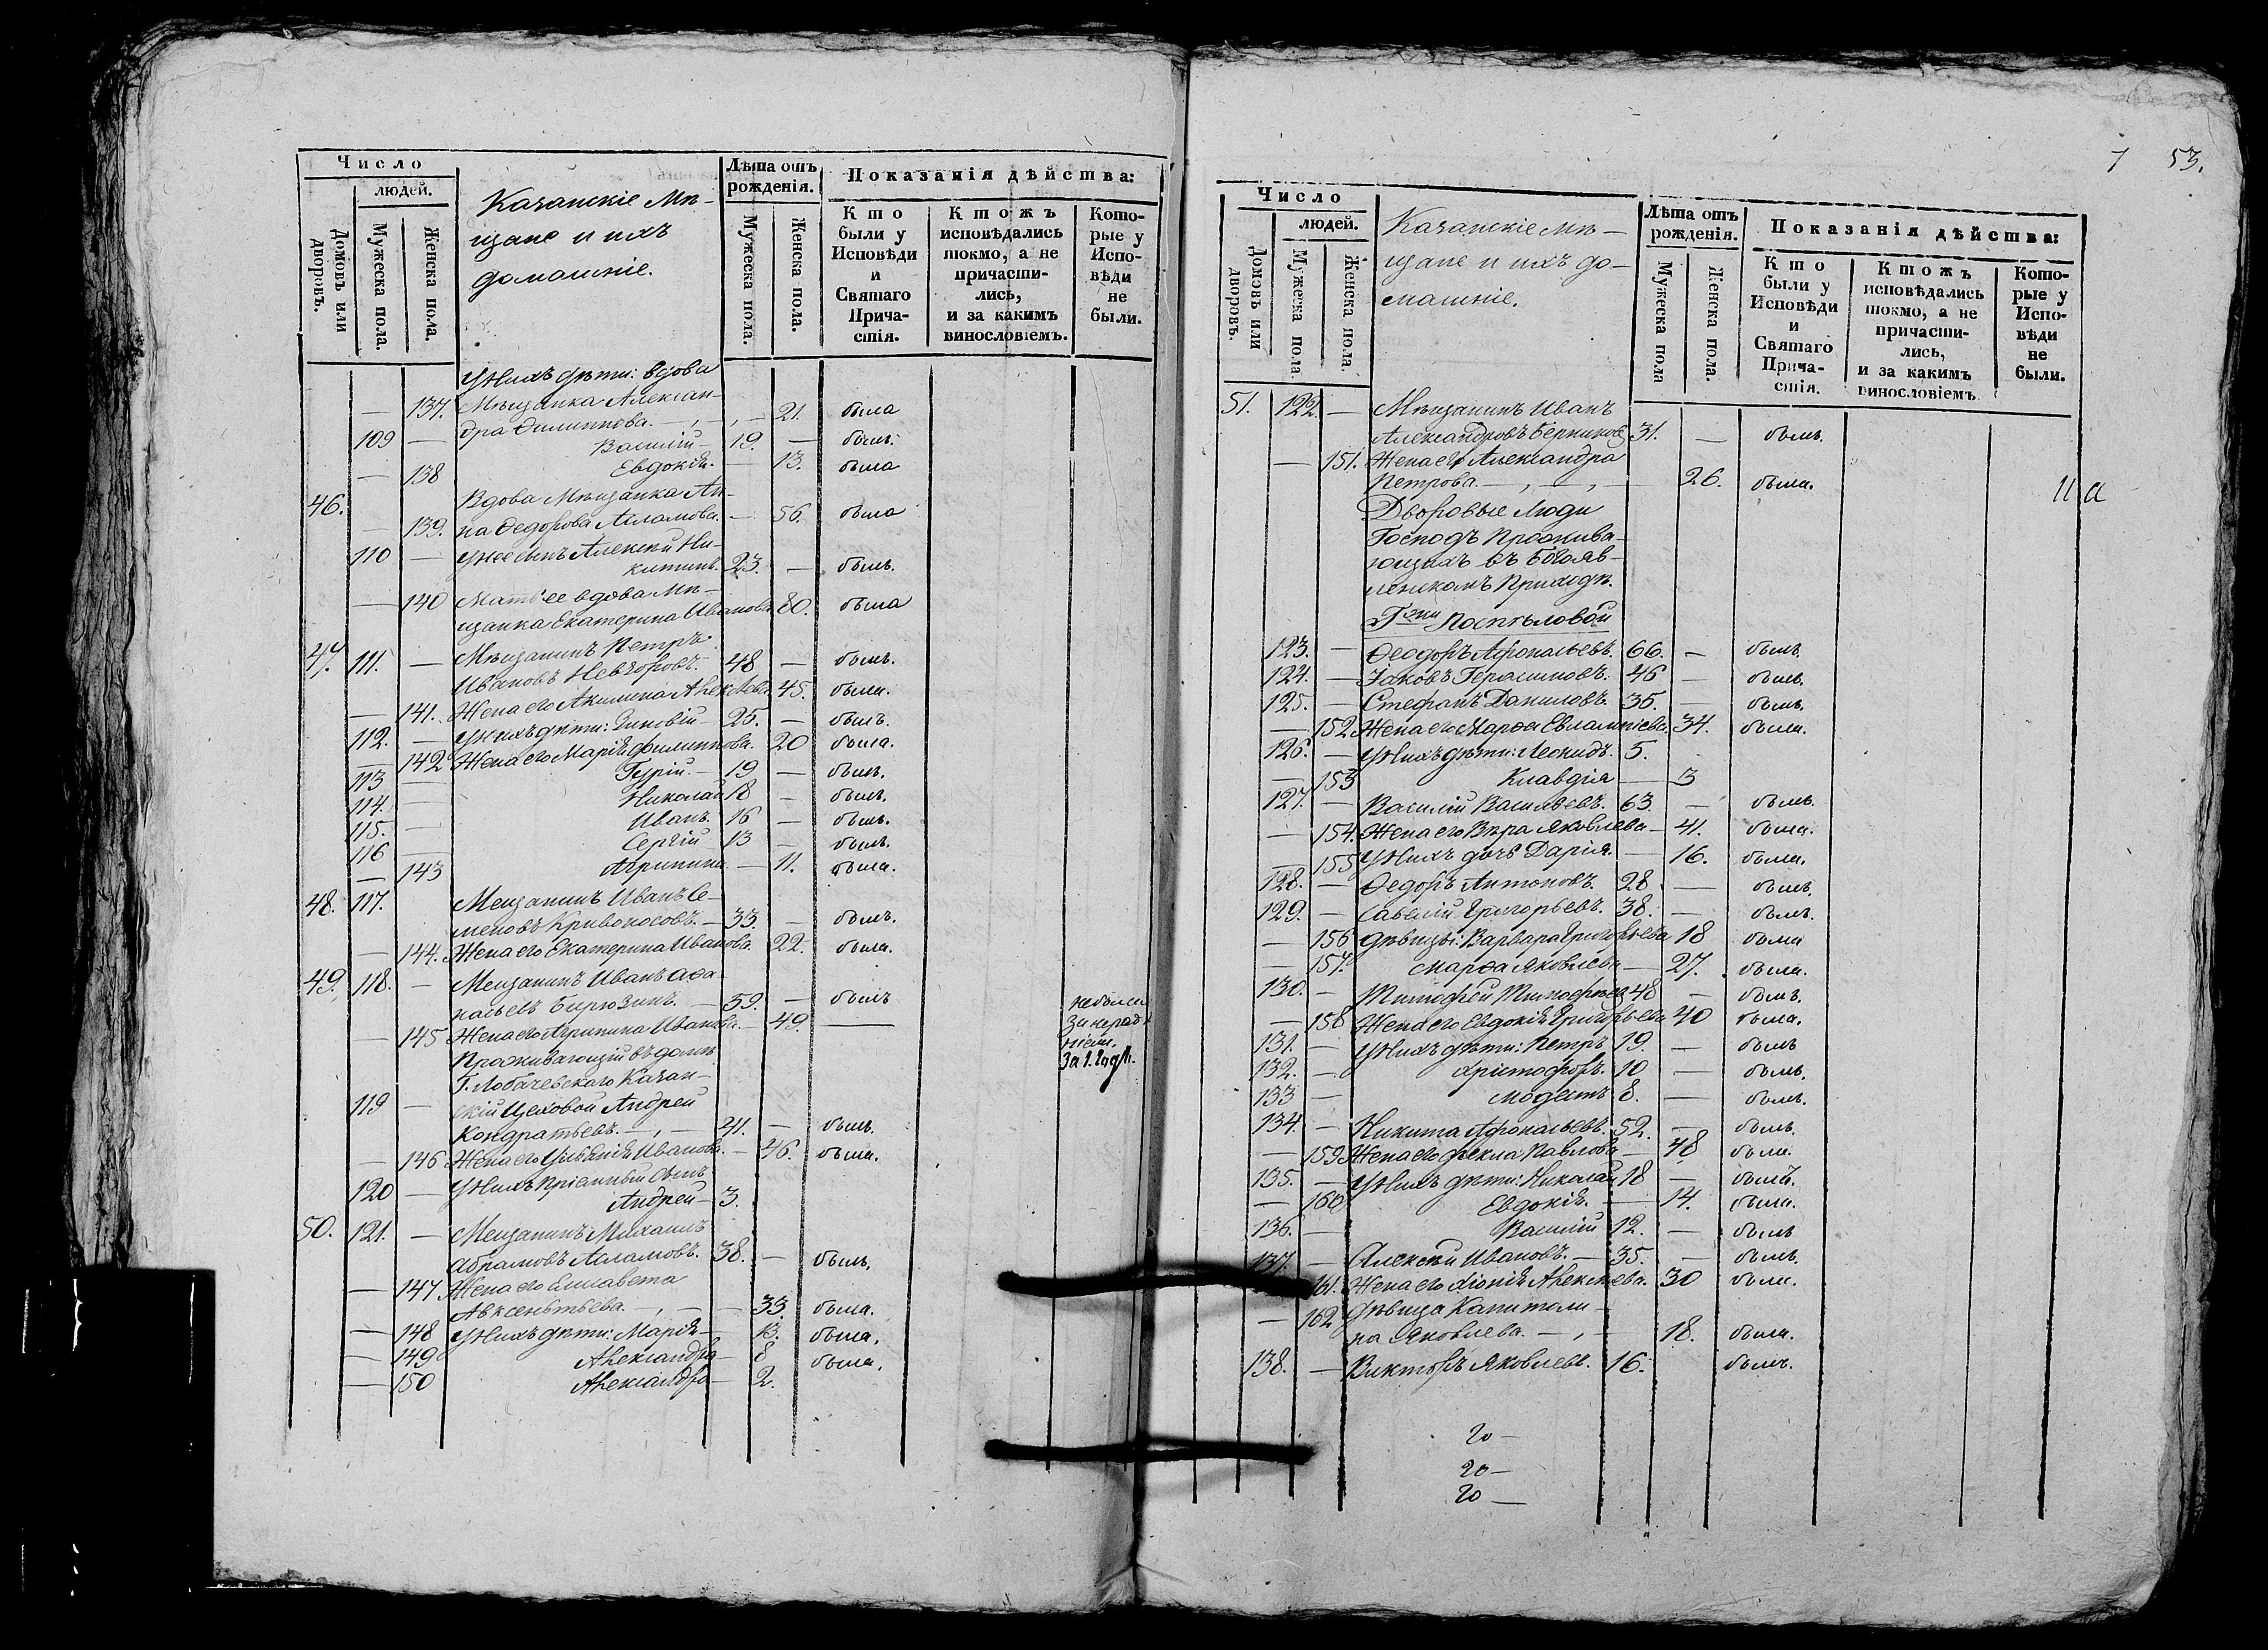 Число
людей.
Домовъ или дворовъ.
Мужеска пола.
Женска пола.
Казанскіе Мѣ-
щане и ихъ
домашніе.
Лѣта отъ рожденія.
Мужеска пола.
Женска пола.
Показанія дѣйства:
Кто были у Исповѣди и Святаго Прича-стія.
Ктожъ исповѣдались токмо, а не причасти-лись, и за какимъ винословіемъ.
Кото-рые у Испо-вѣди не были.
У нихъ дѣти: вдова
— 137. Мѣщанка Алексан-
дра Филиппова. — 21. была
109 — Василій — 19. — былъ.
— 138 Евдокія. — 13. была
46. Вдова Мѣщанка Ан-
— 139. на Ѳедорова Асламова. — 56. была
110 — У нее сынъ Алексѣй Ни-
китинъ. 23. — былъ.
— 140 Мать ее вдова Мѣ-
щанка Екатерина Иванова 80. была
47. 111. — Мѣщанинъ Петръ
Ивановъ Невзоровъ. 48 — былъ.
— 141. Жена его Акилина Алексѣева 45. была.
112. — У нихъ дѣти: Зиновій — 25. — былъ.
— 142 Жена его Марія Филиппова. 20 была.
113 — Гурій. — 19 — былъ.
114. — Николай 18 — былъ.
115. — Иванъ. 16 — былъ.
116 — Сергій 13 — былъ.
— 143 Агрипина — 11. была.
48. 117. Мещанинъ Иванъ Се-
меновъ Кривоносовъ. — 33. — былъ.
— 144. Жена его Екатерина Иванова. 22. была.
49. 118. — Мещанинъ Иванъ Аѳа-
насьевъ Бирюзинъ. — 59. — былъ
— 145 Жена его Агрипина Иванова. — 49. — не была
За нерадѣ
ніем.
За 1. годъ.
Проживающій въ домѣ
Г. Лобачевскаго Казан-
119 — скій Цеховой Андрей
Кондратьевъ. — 41. — былъ
— 146 Жена его Ульянія Иванова. — 46. была.
120 — У нихъ пріемный сынъ
Андрей — 3.
50. 121. — Мещанинъ Михаилъ
Абрамовъ Асламовъ. 38. — былъ.
— 147 Жена его Елисавета
Авксентьева. — 33. была.
— 148 У нихъ дѣти: Марія — 13. была.
— 149 Александра — 8 была.
— 150 Александра — 2.
7 53.
Число
людей.
Домовъ или дворовъ.
Мужеска пола.
Женска пола.
Казанскіе Мѣ-
щане и ихъ до-
машніе.
Лѣта отъ рожденія.
Мужеска пола
Женска пола.
Показанія дѣйства:
Кто были у Исповѣди и Святаго Прича-стія.
Ктожъ исповѣдались токмо, а не причасти-лись, и за какимъ винословіемъ
Кото-рые у Испо-вѣди не были.
51. 122 — Мѣщанинъ Иванъ
Александровъ Берниковъ 31. — былъ.
— 151. Жена его Александра
Петрова. — 26. была.
11 а
Дворовые Люди
Господъ Прожива-
ющихъ въ Богояв-
ленскомъ Приходѣ.
Гжи Поспѣловой
123. — Ѳеодоръ Афонасьевъ. 66. — былъ.
124. — Іаковъ Герасимовъ. 46 — былъ.
125. — Стефанъ Даниловъ. 35. — былъ.
— 152 Жена его Марѳа Евлампіева. 34. была.
126. — У нихъ дѣти: Леонидъ. 5.
— 153 Клавдія — 3
127. — Василій Васильевъ. 63. — былъ.
— 154. Жена его Вѣра Яковлева — 41. была.
— 155 У нихъ дочь Дарія. — 16. была.
128. — Ѳедоръ Антоновъ. 28 — былъ.
129. — Савелій Григорьевъ. 38. — былъ.
— 156 Дѣвицы: Варвара Григорьева 18 была
— 157. Марѳа Яковлева — 27. была.
130. — Тимофей Тимофѣевъ 48 — былъ.
— 158 Жена его Евдокія Григорьева 40 была.
131. — У нихъ дѣти: Петръ 19. — былъ
132. — Христофоръ. 10 — былъ.
133 — Модестъ 8. — былъ.
134. — Никита Афонасьевъ. 52. — былъ.
— 159 Жена его Фекла Павлова — 48 была.
135. — У нихъ дѣти: Николай 18 — былъ.
— 160 Евдокія. — 14. была.
136. — Василій 12. — былъ
137. — Алексѣй Ивановъ. — 35. — былъ.
161. Жена его Хіонія Алексѣева. 30 была.
— 162 Дѣвица Капитоли-
на Яковлева. — 18. была.
138. — Викторъ Яковлевъ. 16. былъ.
20 —
20 —
20 —